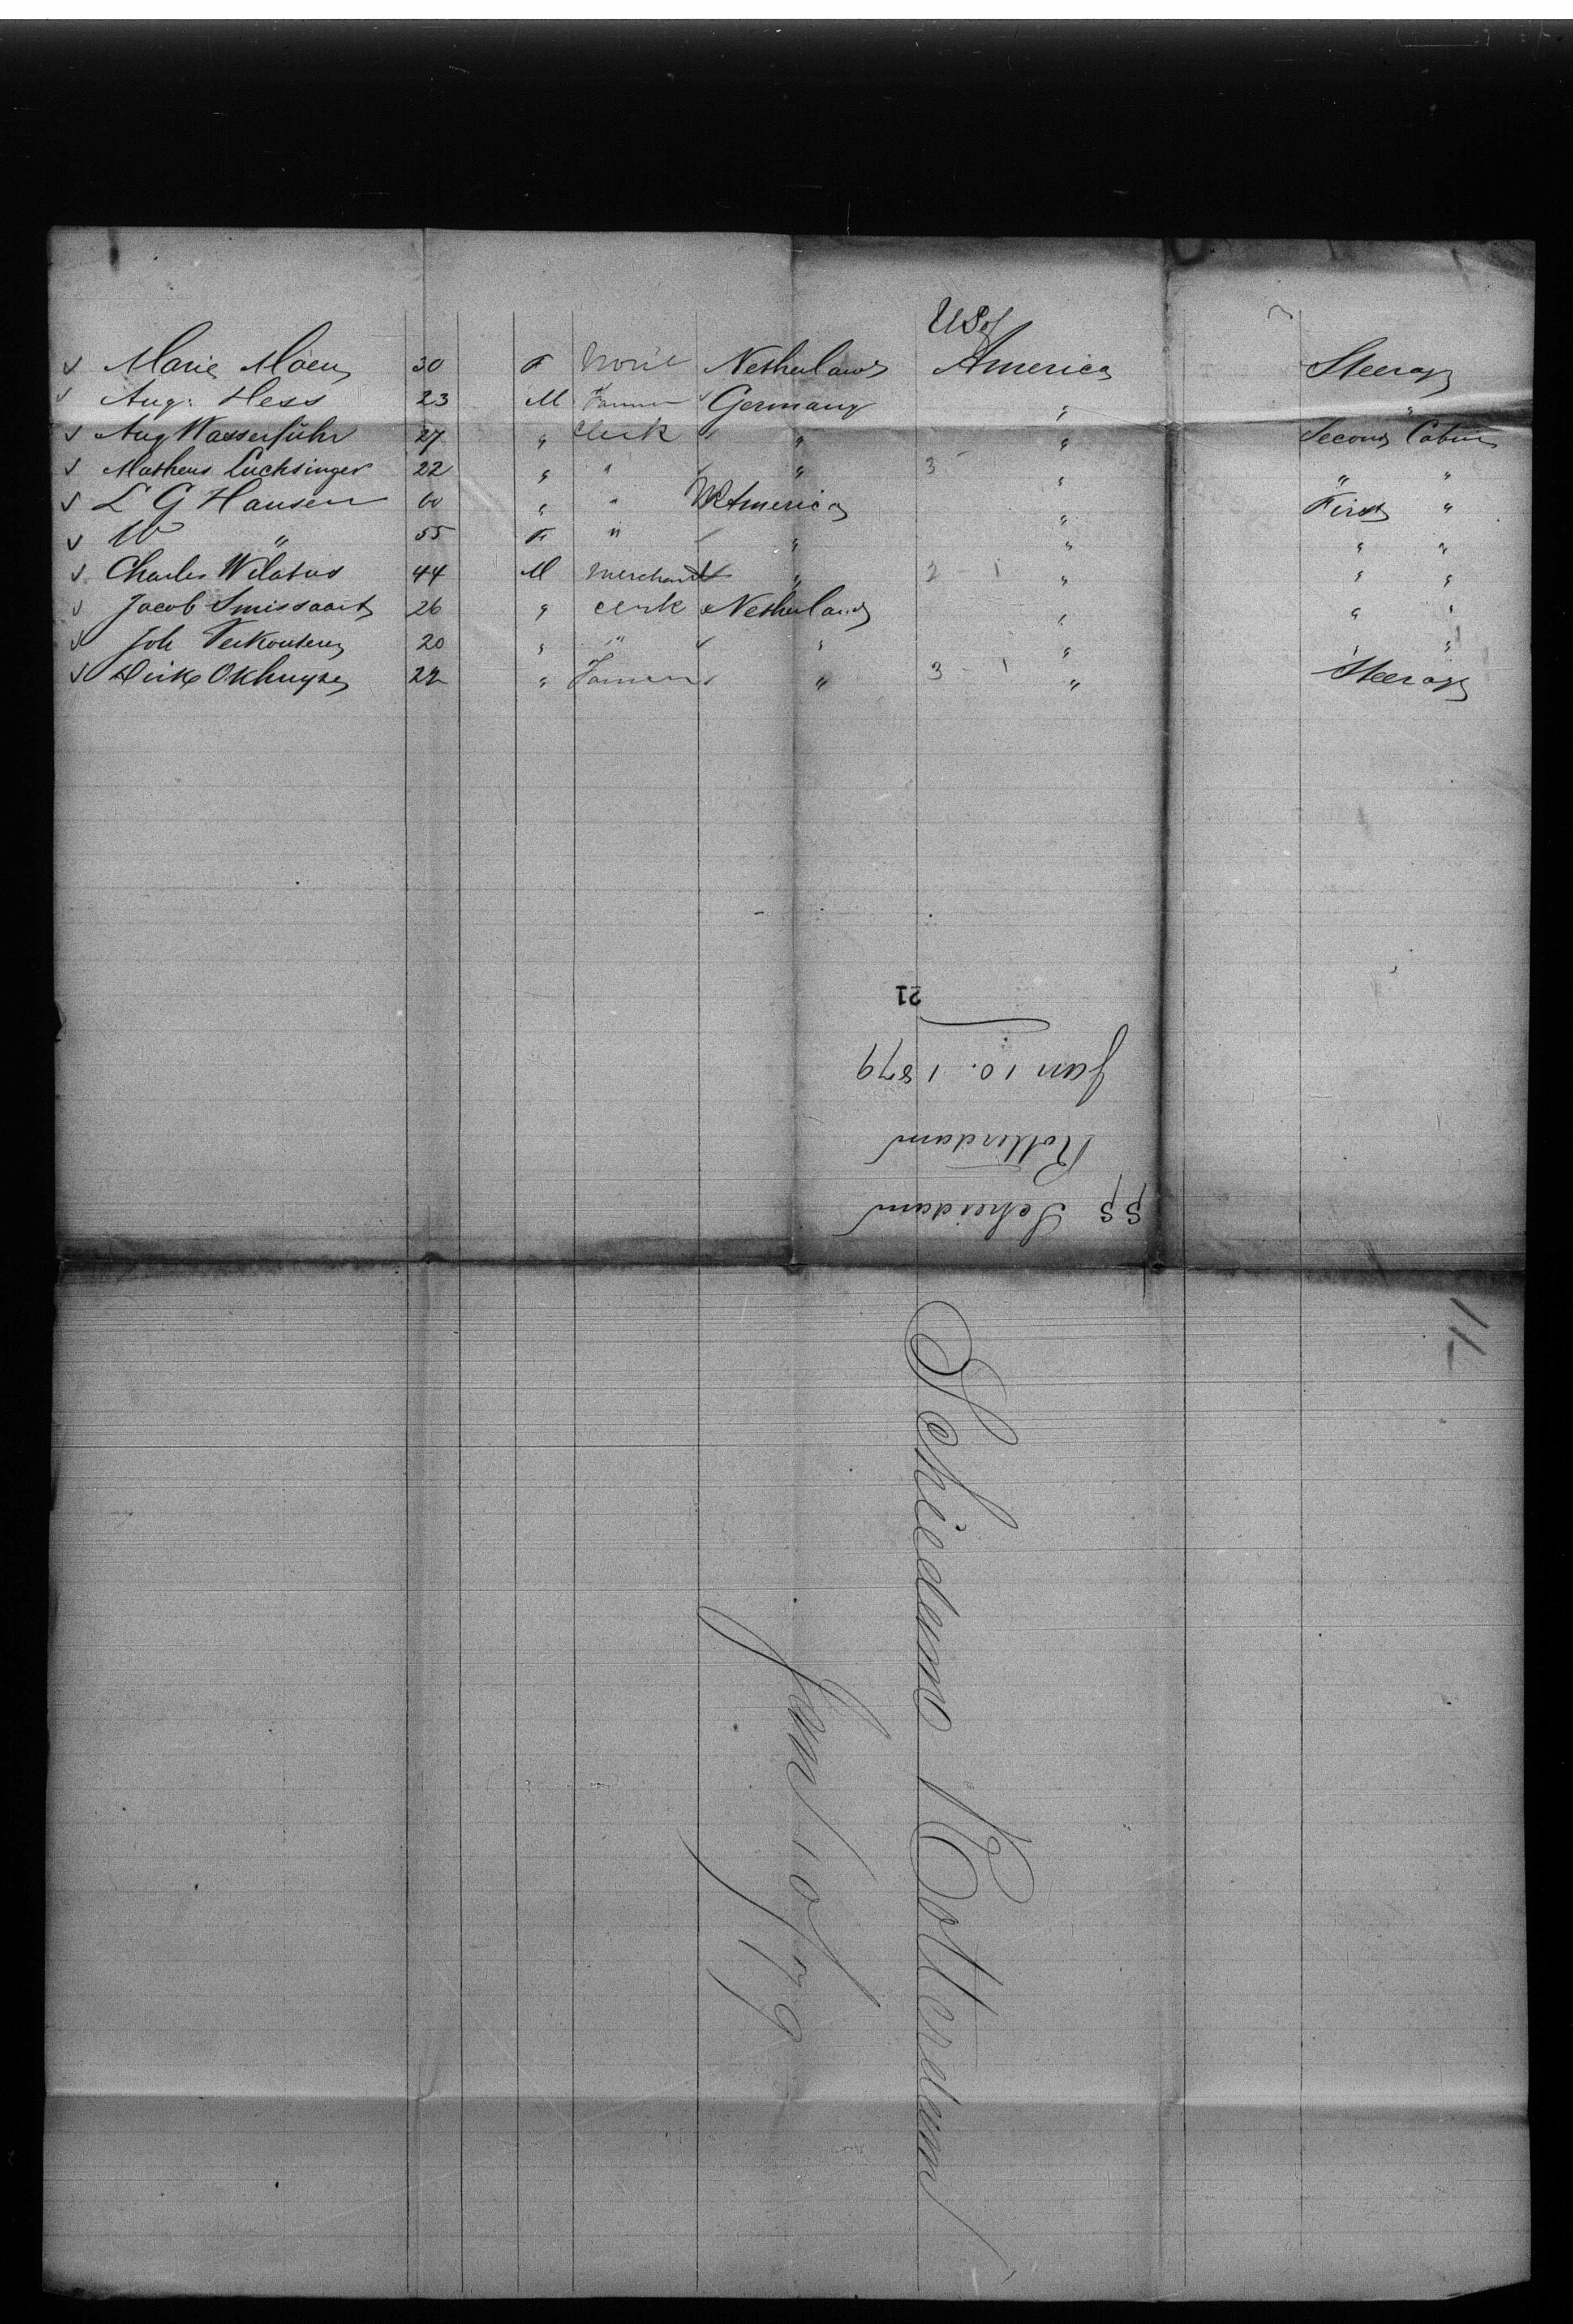 USof
✓ Marie Moen 30 F None Netherlands America Steerage
✓ Aug. Hess 23 M Farmer ✓ Germany " "
✓ Aug Wasserfuhr 27 " Clerk " " " Second Cabin
✓ Matheus Luchsinger 22 " " ✓ " 3 - " " "
✓ L G Hansen 60 " " America " First "
✓ W " 55 F " ✓ " " " "
✓ Charles 44 M Merchant " 2 1 " " "
✓ Jacob Smissaart 26 " Clerk Netherlands " " "
✓ Joh Verkouteren 20 " " " " " " "
✓ Dirk Okhuyzen 22 " Farmer " 3 - 1 " Steerage
21
Jan 10. 1879
Rotterdam
SS Scheidam
11
Schiedam Rotterdam
Jan 10/79